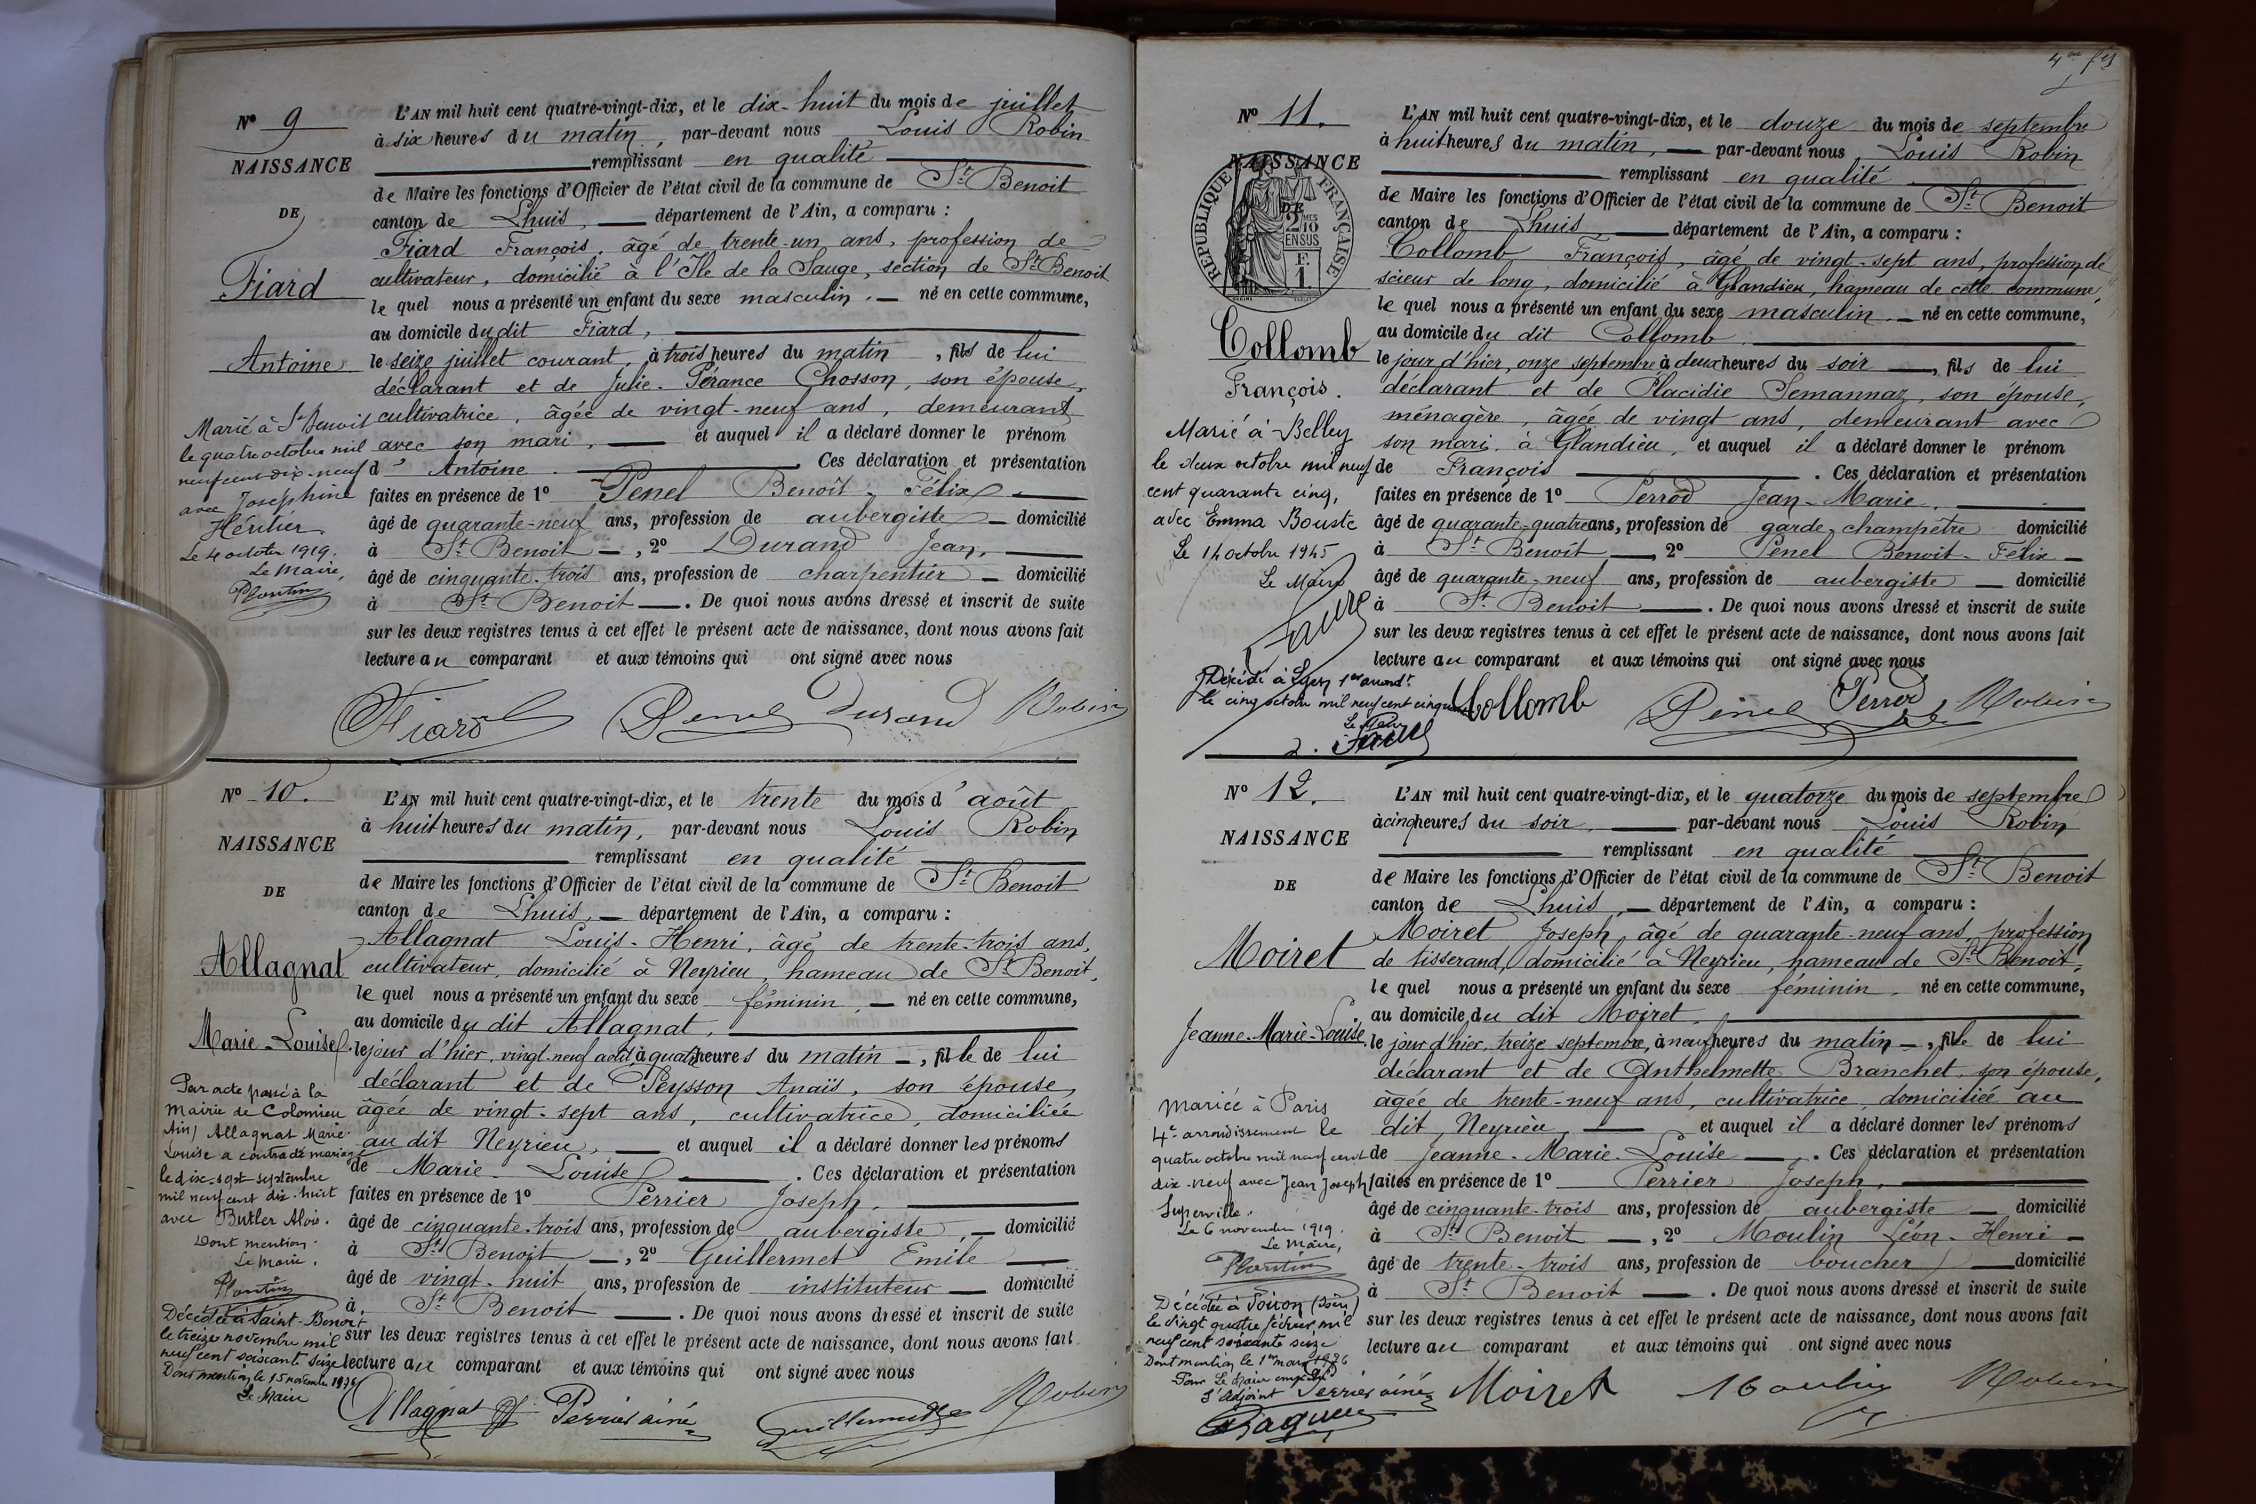 Nº 9
NAISSANCE
DE
Fiard
Antoine
L'AN mil huit cent quatre-vingt-dix, et le dix-huit du mois de juillet
à six heures du matin, par-devant nous Louis Robin
remplissant en qualité
de Maire les fonctions d'Officier de l'état civil de la commune de St Benoit
canton de Lhuis, département de l'Ain, a comparu :
Fiard François, âgé de trente-un ans, profession de
cultivateur, domicilié à l'Île de la Sauge, section de St Benoit
le quel nous a présenté un enfant du sexe masculin, né en cette commune,
au domicile du dit Fiard,
le seize juillet courant, à trois heures du matin, fils de lui
déclarant et de Julie-Pérance Chosson, son épouse,
cultivatrice, âgée de vingt-neuf ans, demeurant
avec son mari, et auquel il a déclaré donner le prénom
d'Antoine. Ces déclaration et présentation
faites en présence de 1º Penel Benoît-Félix,
âgé de quarante-neuf ans, profession de aubergiste domicilié
à St Benoit, 2º Durand Jean,
âgé de cinquante-trois ans, profession de charpentier domicilié
à St Benoit. De quoi nous avons dressé et inscrit de suite
sur les deux registres tenus à cet effet le présent acte de naissance, dont nous avons fait
lecture au comparant et aux témoins qui ont signé avec nous
Marié à St Benoit
le quatre octobre mil
neuf cent dix-neuf
avec Joséphine
Héritier
Le 4 octobre 1919.
Le Maire,
Plantin
Fiard Penel Durand Robin
Nº 10.
NAISSANCE
DE
Allagnat
Marie-Louise
L'AN mil huit cent quatre-vingt-dix, et le trente du mois d'août
à huit heures du matin, par-devant nous Louis Robin
remplissant en qualité
de Maire les fonctions d'Officier de l'état civil de la commune de St Benoit
canton de Lhuis, département de l'Ain, a comparu :
Allagnat Louis-Henri, âgé de trente-trois ans,
cultivateur, domicilié à Neyrieu, hameau de St Benoit,
le quel nous a présenté un enfant du sexe féminin, né en cette commune,
au domicile du dit Allagnat,
le jour d'hier, vingt-neuf août à quatre heures du matin, fille de lui
déclarant et de Peysson Anaïs, son épouse,
âgée de vingt-sept ans, cultivatrice, domiciliée
au dit Neyrieu, et auquel il a déclaré donner les prénoms
de Marie-Louise. Ces déclaration et présentation
faites en présence de 1º Perrier Joseph,
âgé de cinquante-trois ans, profession de aubergiste, domicilié
à St Benoit, 2º Guillermet Emile
âgé de vingt-huit ans, profession de instituteur domicilié
à St Benoit. De quoi nous avons dressé et inscrit de suite
sur les deux registres tenus à cet effet le présent acte de naissance, dont nous avons fait
lecture au comparant et aux témoins qui ont signé avec nous
Par acte passé à la
Mairie de Colomieu
Ain) Allagnat Marie
Louise a contracté mariage
le dix-sept septembre
mil neuf cent dix-huit
avec Butler Alois.
Dont mention.
Le Maire.
Plantin
Décédée à Saint-Benoit
le treize novembre mil
neuf cent soixante seize
Dont mention le 15 novembre 1976
Le Maire
Allagnat Perrier ainé Guillermet Robin
4me
Nº 11.
NAISSANCE
DE
RÉPUBLIQUE FRANÇAISE
2 MES
10
EN SUS
F.
1.
Collomb
François.
L'AN mil huit cent quatre-vingt-dix, et le douze du mois de septembre
à huit heures du matin, par-devant nous Louis Robin
remplissant en qualité
de Maire les fonctions d'Officier de l'état civil de la commune de St Benoit
canton de Lhuis, département de l'Ain, a comparu :
Collomb François, âgé de vingt-sept ans, profession de
scieur de long, domicilié à Glandieu, hameau de cette commune,
le quel nous a présenté un enfant du sexe masculin, né en cette commune,
au domicile du dit Collomb
le jour d'hier, onze septembre à deux heures du soir, fils de lui
déclarant et de Placidie Semannaz, son épouse,
ménagère, âgée de vingt ans, demeurant avec
son mari à Glandieu, et auquel il a déclaré donner le prénom
de François. Ces déclaration et présentation
faites en présence de 1º Perrod Jean-Marie,
âgé de quarante-quatre ans, profession de garde champêtre domicilié
à St Benoît, 2º Penel Benoit-Félix
âgé de quarante-neuf ans, profession de aubergiste domicilié
à St Benoit. De quoi nous avons dressé et inscrit de suite
sur les deux registres tenus à cet effet le présent acte de naissance, dont nous avons fait
lecture au comparant et aux témoins qui ont signé avec nous
Marié à Belley
le deux octobre mil neuf
cent quarante cinq,
avec Emma Bouste
Le 14 octobre 1945
Le Maire
Décédé à Lyon 1er arrondt
le cinq octobre mil neuf cent cinquante
Le Maire
Collomb Penel Perrod Robin
Nº 12.
NAISSANCE
DE
Moiret
Jeanne-Marie-Louise
L'AN mil huit cent quatre-vingt-dix, et le quatorze du mois de septembre
à cinq heures du soir, par-devant nous Louis Robin
remplissant en qualité
de Maire les fonctions d'Officier de l'état civil de la commune de St Benoit
canton de Lhuis, département de l'Ain, a comparu :
Moiret Joseph, âgé de quarante-neuf ans, profession
de tisserand, domicilié à Neyrieu, hameau de St Benoit,
le quel nous a présenté un enfant du sexe féminin, né en cette commune,
au domicile du dit Moiret,
le jour d'hier, treize septembre, à neuf heures du matin, fille de lui
déclarant et de Anthelmette Branchet, son épouse,
âgée de trente-neuf ans, cultivatrice, domiciliée au
dit Neyrieu, et auquel il a déclaré donner les prénoms
de Jeanne-Marie-Louise. Ces déclaration et présentation
faites en présence de 1º Perrier Joseph,
âgé de cinquante-trois ans, profession de aubergiste domicilié
à St Benoit, 2º Moulin Léon-Henri
âgé de trente-trois ans, profession de boucher domicilié
à St Benoit. De quoi nous avons dressé et inscrit de suite
sur les deux registres tenus à cet effet le présent acte de naissance, dont nous avons fait
lecture au comparant et aux témoins qui ont signé avec nous
Mariée à Paris
4e arrondissement le
quatre octobre mil neuf cent
dix-neuf avec Jean Joseph
Superville.
Le 6 novembre 1919.
Le Maire,
Plantin
Décédée à
le vingt quatre février mil
neuf cent soixante seize
Dont mention le 1er mars 1976
Pour Le Maire empêché
L'Adjoint
Perrier ainé Moiret Moulin Robin